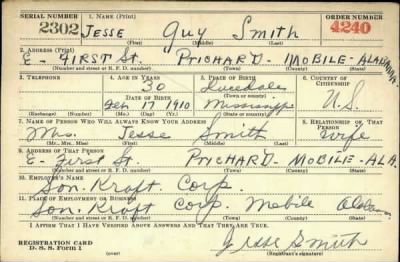 SERIAL NUMBER 1. NAME (Print) ORDER NUMBER
2302 JESSE Guy Smith 4240
(First) (Middle) (Last)
2. ADDRESS (Print)
E- FIRST St. PRICHARD- MOBILE-ALABAMA
(Number and street or R. F. D. number) (Town) (County) (State)
3. TELEPHONE 4. AGE IN YEARS 5. PLACE OF BIRTH 6. COUNTRY OF CITIZENSHIP
30 Lucedale
DATE OF BIRTH (Town or county)
Feb 17 1910 Mississippi U.S.
(Exchange) (Number) (Mo.) (Day) (Yr.) (State or country)
7. NAME OF PERSON WHO WILL ALWAYS KNOW YOUR ADDRESS 8. RELATIONSHIP OF THAT PERSON
Mrs. Jesse Smith Wife
(Mr., Mrs., Miss) (First) (Middle) (Last)
9. ADDRESS OF THAT PERSON
E- First St. PRICHARD- MOBILE-ALA.
(Number and street or R. F. D. number) (Town) (County) (State)
10. EMPLOYER'S NAME
Son-Kraft Corp.
11. PLACE OF EMPLOYMENT OR BUSINESS
Son-Kraft Corp. Mobile
(Number and street or R. F. D. number) (Town) (County) (State)
I AFFIRM THAT I HAVE VERIFIED ABOVE ANSWERS AND THAT THEY ARE TRUE.
Jesse Smith
REGISTRATION CARD
D. S. S. Form 1 (Registrant's signature)